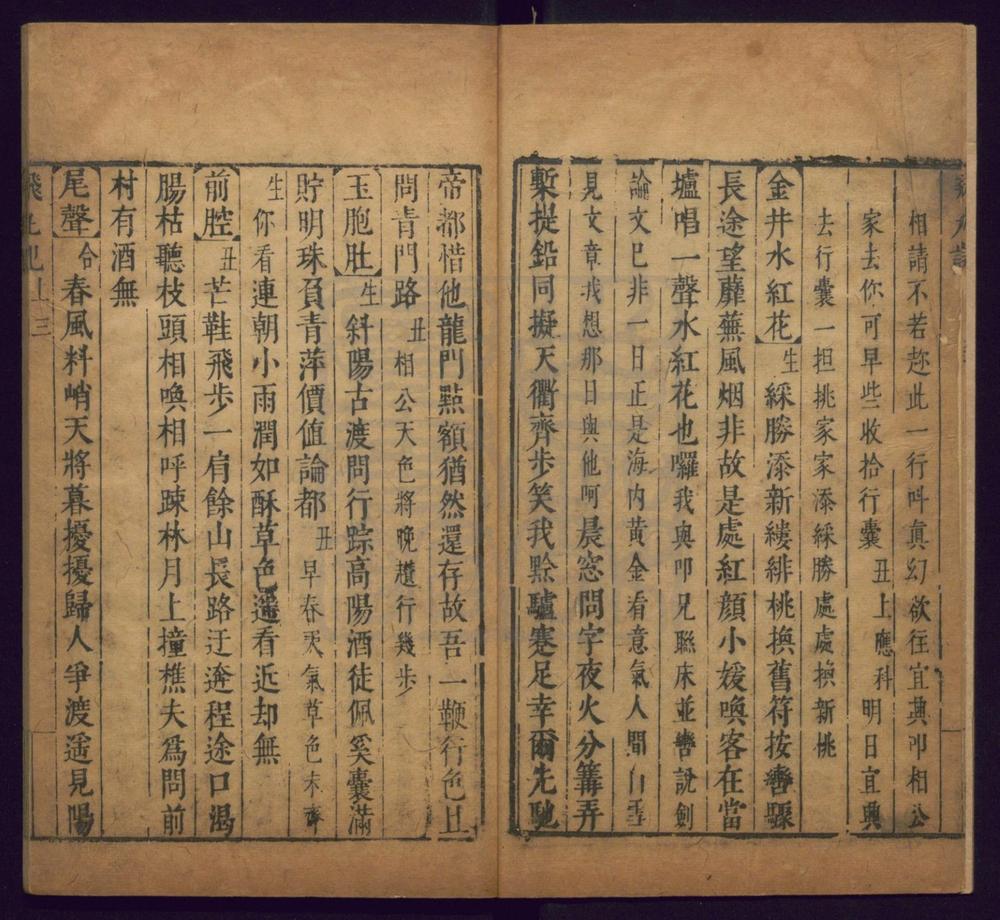 相請不若趂此一行呌眞幻欲徃宜典叩相公
家去你可早些收拾行囊丑上應科明日宜興
去行囊一担挑家家添綵勝處處換新桃
金井水紅花生綵勝添新縷緋桃換舊符按轡驟
長途望蘼蕪風烟非故是處紅顔小媛喚客在當
壚唱一聲水紅花也囉我與叩兄聮床並轡說劍
論文已非一日正是海内黄金看意氣人間白
見文章我想那日與他呵晨窓問字夜火分篝弄
槧提鉛同擬天衢齊步笑我黔驢蹇足幸爾先馳
帝都惜他龍門㸃額猶然還存故吾一鞭行色且
問青門路丑相公天色將晚趲行幾步
玉胞肚生斜陽古渡問行踪高陽酒徒佩奚囊滿
貯明珠負青萍價值論都丑早春天氣草色未齊
生你看連朝小雨潤如酥草色遥看近却無
前腔丑芒鞋飛步一肩餘山長路迂逩程途口渴
腸枯聽枝頭相喚相呼踈林月上撞樵夫爲問前
村有酒無
尾聲合春風料峭天將暮擾擾歸人爭渡遥見陽
上三